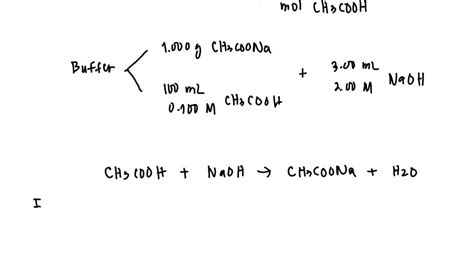 mol CH3COOH
1.000 g CH3COONa
Buffer
100 mL
0.100 M CH3COOH
+
3.00 mL
2.00 M NaOH
CH3COOH + NaOH → CH3COONa + H2O
I